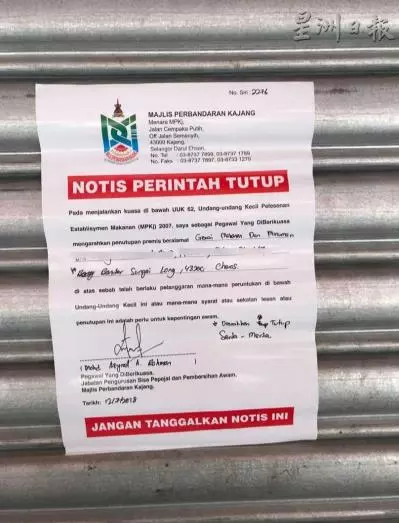 星洲日報
No. Siri : 2276
MAJLIS PERBANDARAN KAJANG
Menara MPKj,
Jalan Cempaka Putih,
Off Jalan Semenyih,
43000 Kajang,
Selangor Darul Ehsan.
No. Tel : 03-8737 7899, 03-8737 1789
No. Faks : 03-8737 7897, 03-8733 1270
NOTIS PERINTAH TUTUP
Pada menjalankan kuasa di bawah UUK 62, Undang-undang Kecil Pelesenan
Establisymen Makanan (MPKj) 2007, saya sebagai Pegawai Yang DiBerikuasa
mengarahkan penutupan premis beralamat Gerai Makanan Dan Minuman
Bandar Sungai Long, 43200 Cheras.
di atas sebab telah berlaku pelanggaran mana-mana peruntukan di bawah
Undang-Undang Kecil ini atau mana-mana syarat atau sekatan lesen atau
penutupan ini adalah perlu untuk kepentingan awam.
* Disahkan Tutup
Serta-Merta
( Mohd A. )
Pegawai Yang DiBerikuasa,
Jabatan Pengurusan Sisa Pepejal dan Pembersihan Awam,
Majlis Perbandaran Kajang.
Tarikh: 12/7/2018
JANGAN TANGGALKAN NOTIS INI